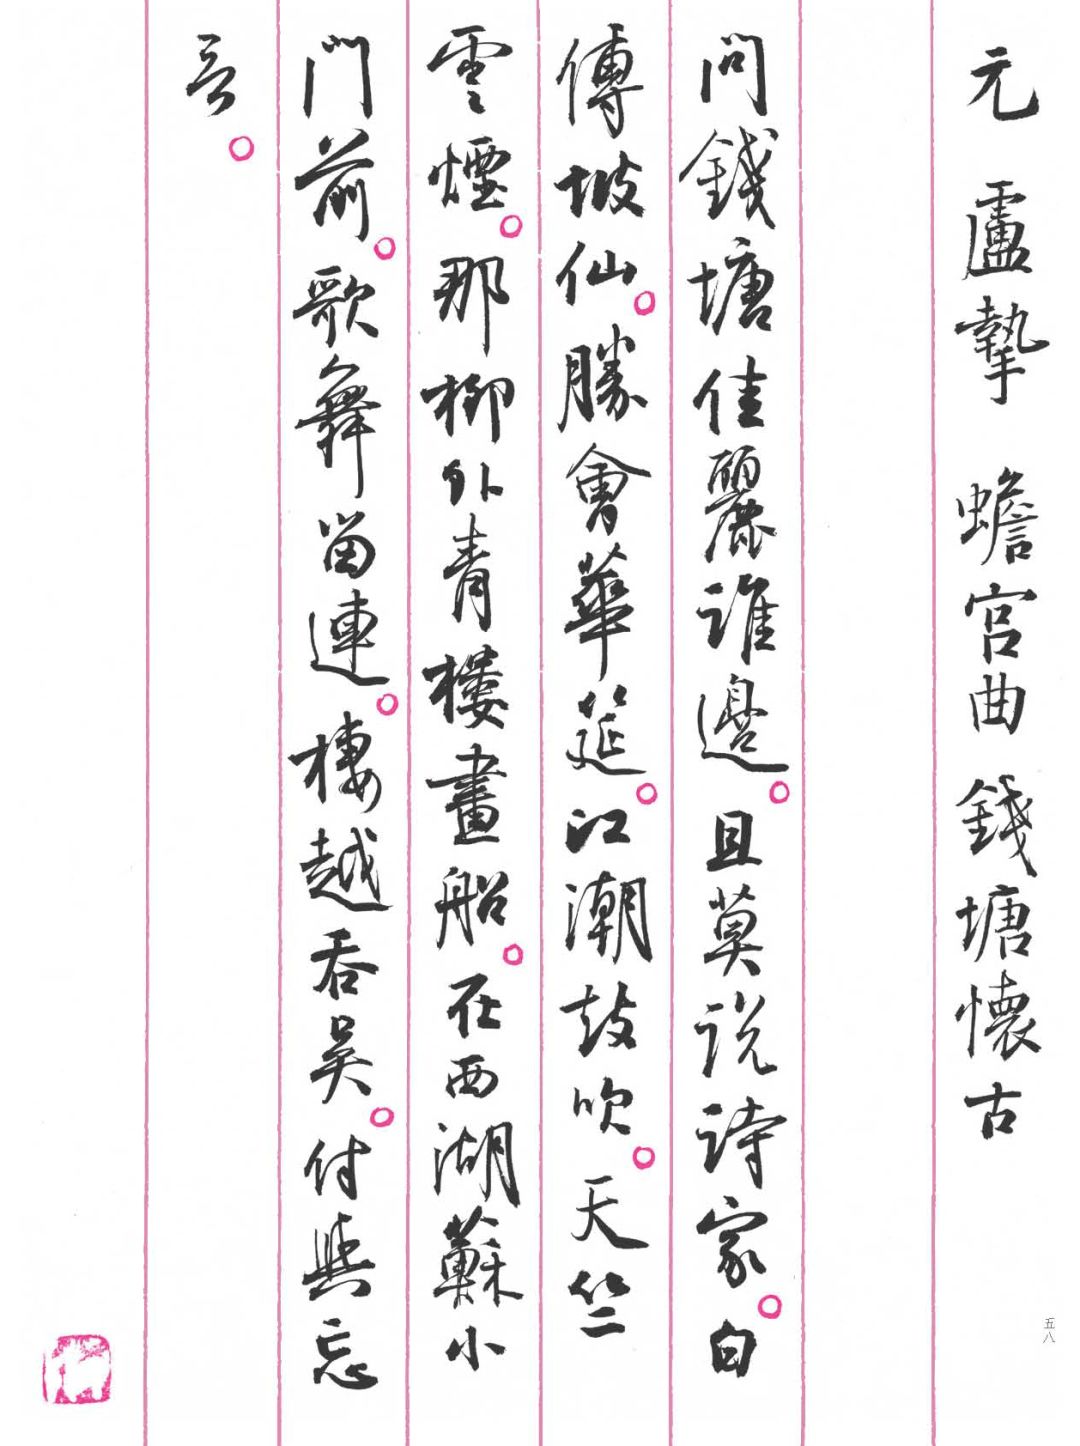 元 盧摯 蟾宮曲 錢塘懷古
問錢塘佳麗誰邊。且莫說詩家。白
傅坡仙。勝會華筵。江潮鼓吹。天竺
雲煙。那柳外青樓畫船。在西湖蘇小
門前。歌舞留連。棲越吞吳。付與忘
言。
五八